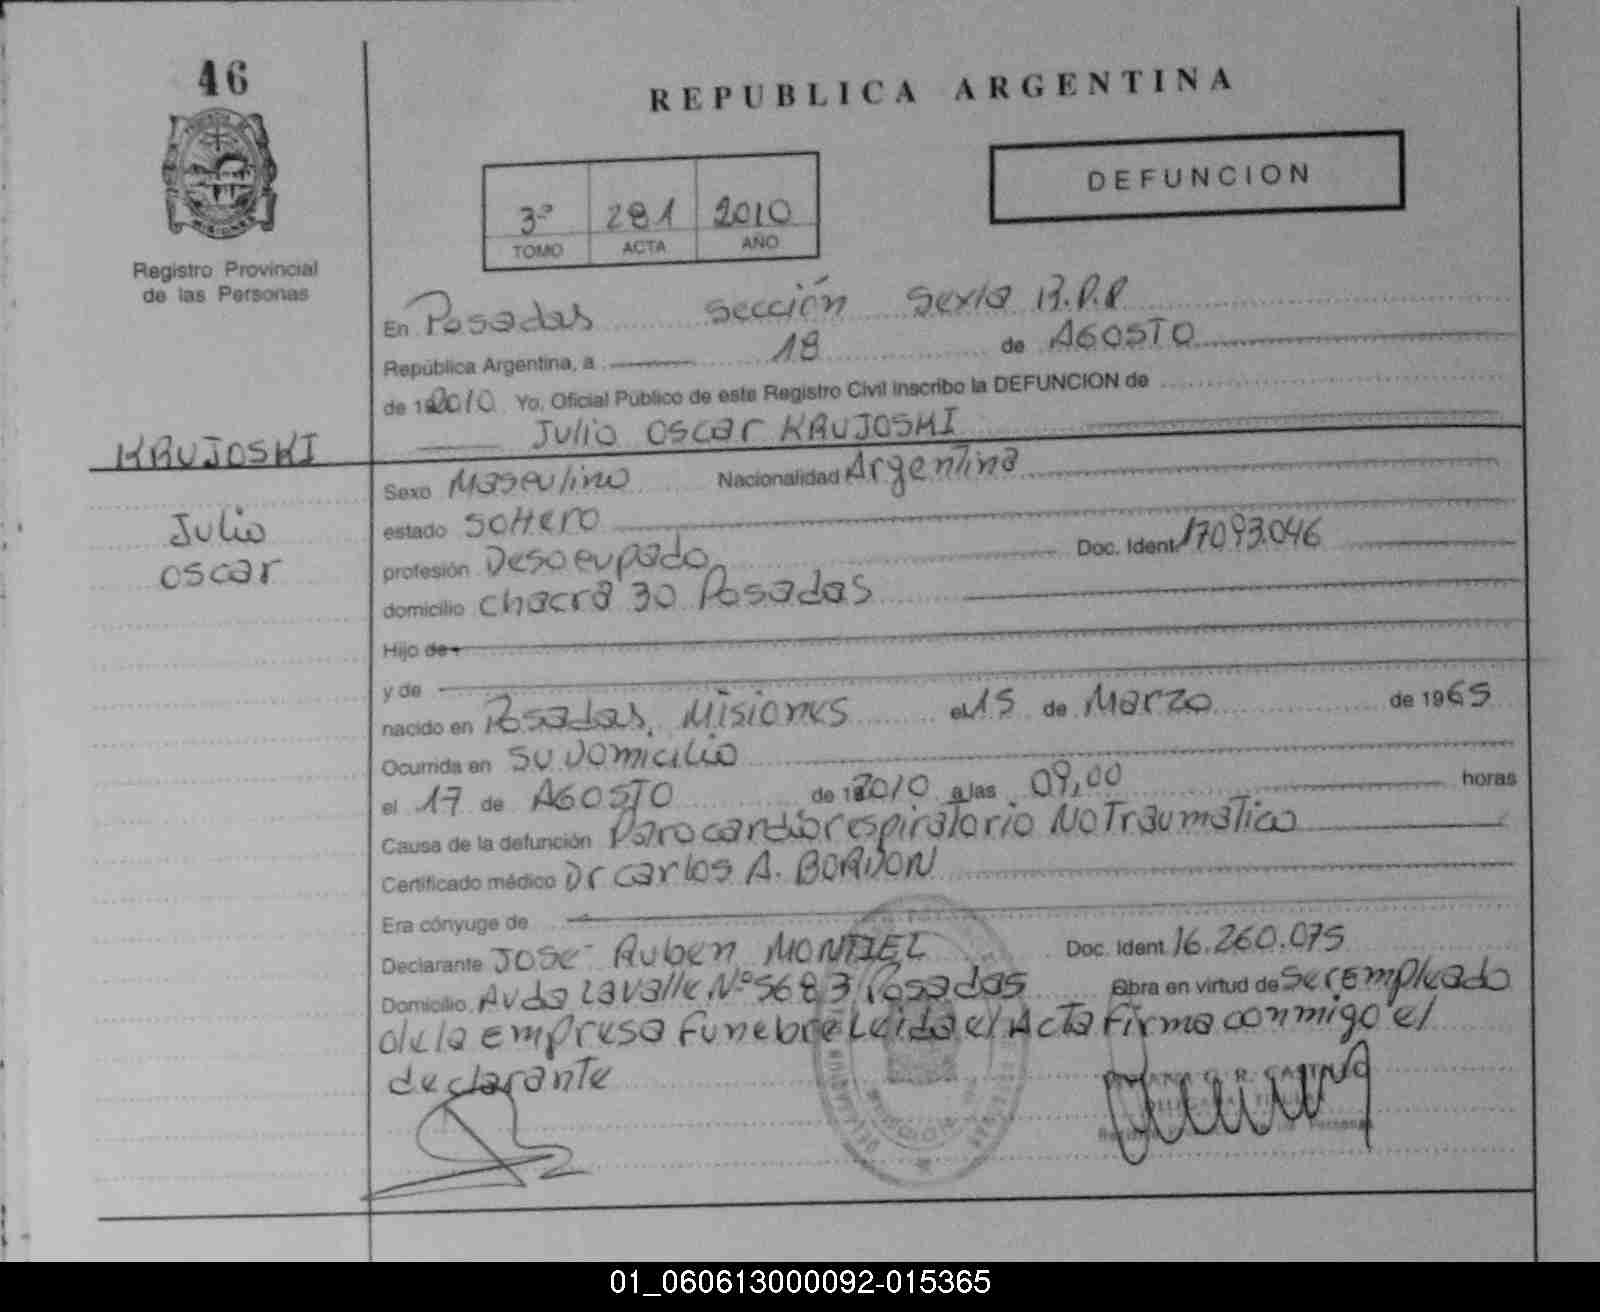 46
REPUBLICA ARGENTINA
DEFUNCION
3º 281 2010
TOMO ACTA AÑO
Registro Provincial
de las Personas
En Posadas sección sexta R.P.P
República Argentina, a 18 de AGOSTO
de 2010 Yo, Oficial Público de este Registro Civil inscribo la DEFUNCION de
Julio Oscar KRUJOSKI
KRUJOSKI
Julio
oscar
Sexo Masculino Nacionalidad Argentina
estado soltero
profesión Desocupado Doc. Ident 17093.046
domicilio chacra 30 Posadas
Hijo de
y de
nacido en Posadas, Misiones el 15 de Marzo de 1965
Ocurrida en su domicilio
el 17 de AGOSTO de 2010 a las 09,00 horas
Causa de la defunción Paro cardiorespiratorio No Traumatico
Certificado médico Dr carlos A. BORDON
Era cónyuge de
Declarante JOSE Ruben MONTIEL Doc. Ident 16.260.075
Domicilio Avda Lavalle Nº 5683 Posadas Obra en virtud de ser Empleado
de la empresa Funebre Leida el Acta Firma conmigo el
declarante
01_060613000092-015365